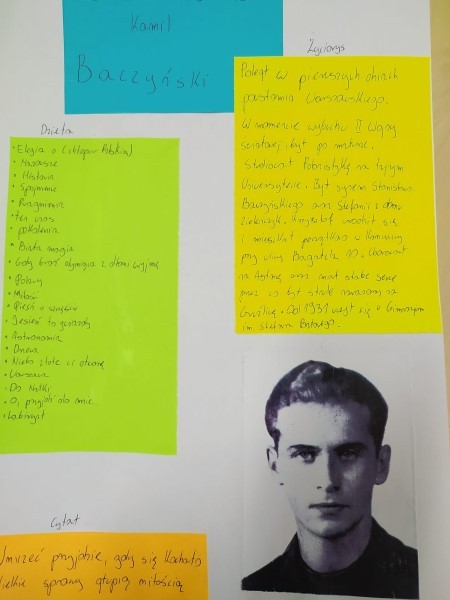 Kamil
Baczyński
Życiorys
Poległ w pierwszych dniach
powstania warszawskiego.
W momencie wybuchu II Wojny
światowej, był po maturze.
Studiował Polonistykę na tajnym
Uniwersytecie. Był synem Stanisława
Baczyńskiego oraz Stefanii z domu
Zieleńczyk. Krzysztof urodził się
i mieszkał początkowo w Kamienicy
przy ulicy Bagatela 10. Chorował
na Astmę oraz miał słabe serce
przez co był stale narażony na
Gruźlicę. Od 1931 uczył się w Gimnazjum
im. Stefana Batorego.
Dzieła
• Elegia o (chłopcu Polskim)
• Mazowsze
• Historia
• Spojrzenie
• Pragnienia
• ten czas
• pokolenie
• Biała magia
• Gdy broń dymiącą z dłoni wyjmę
• Polacy
• Miłość
• Pieśń o szczęściu
• Jesień to gwiazdy
• Astronomia
• Drzewa
• Niebo złote ci otworzę
• Warszawa
• Do Matki
• O, przyjdź do mnie
• Labirynt
Cytat
Umrzeć przyjdzie, gdy się kochało
wielkie sprawy głupią miłością